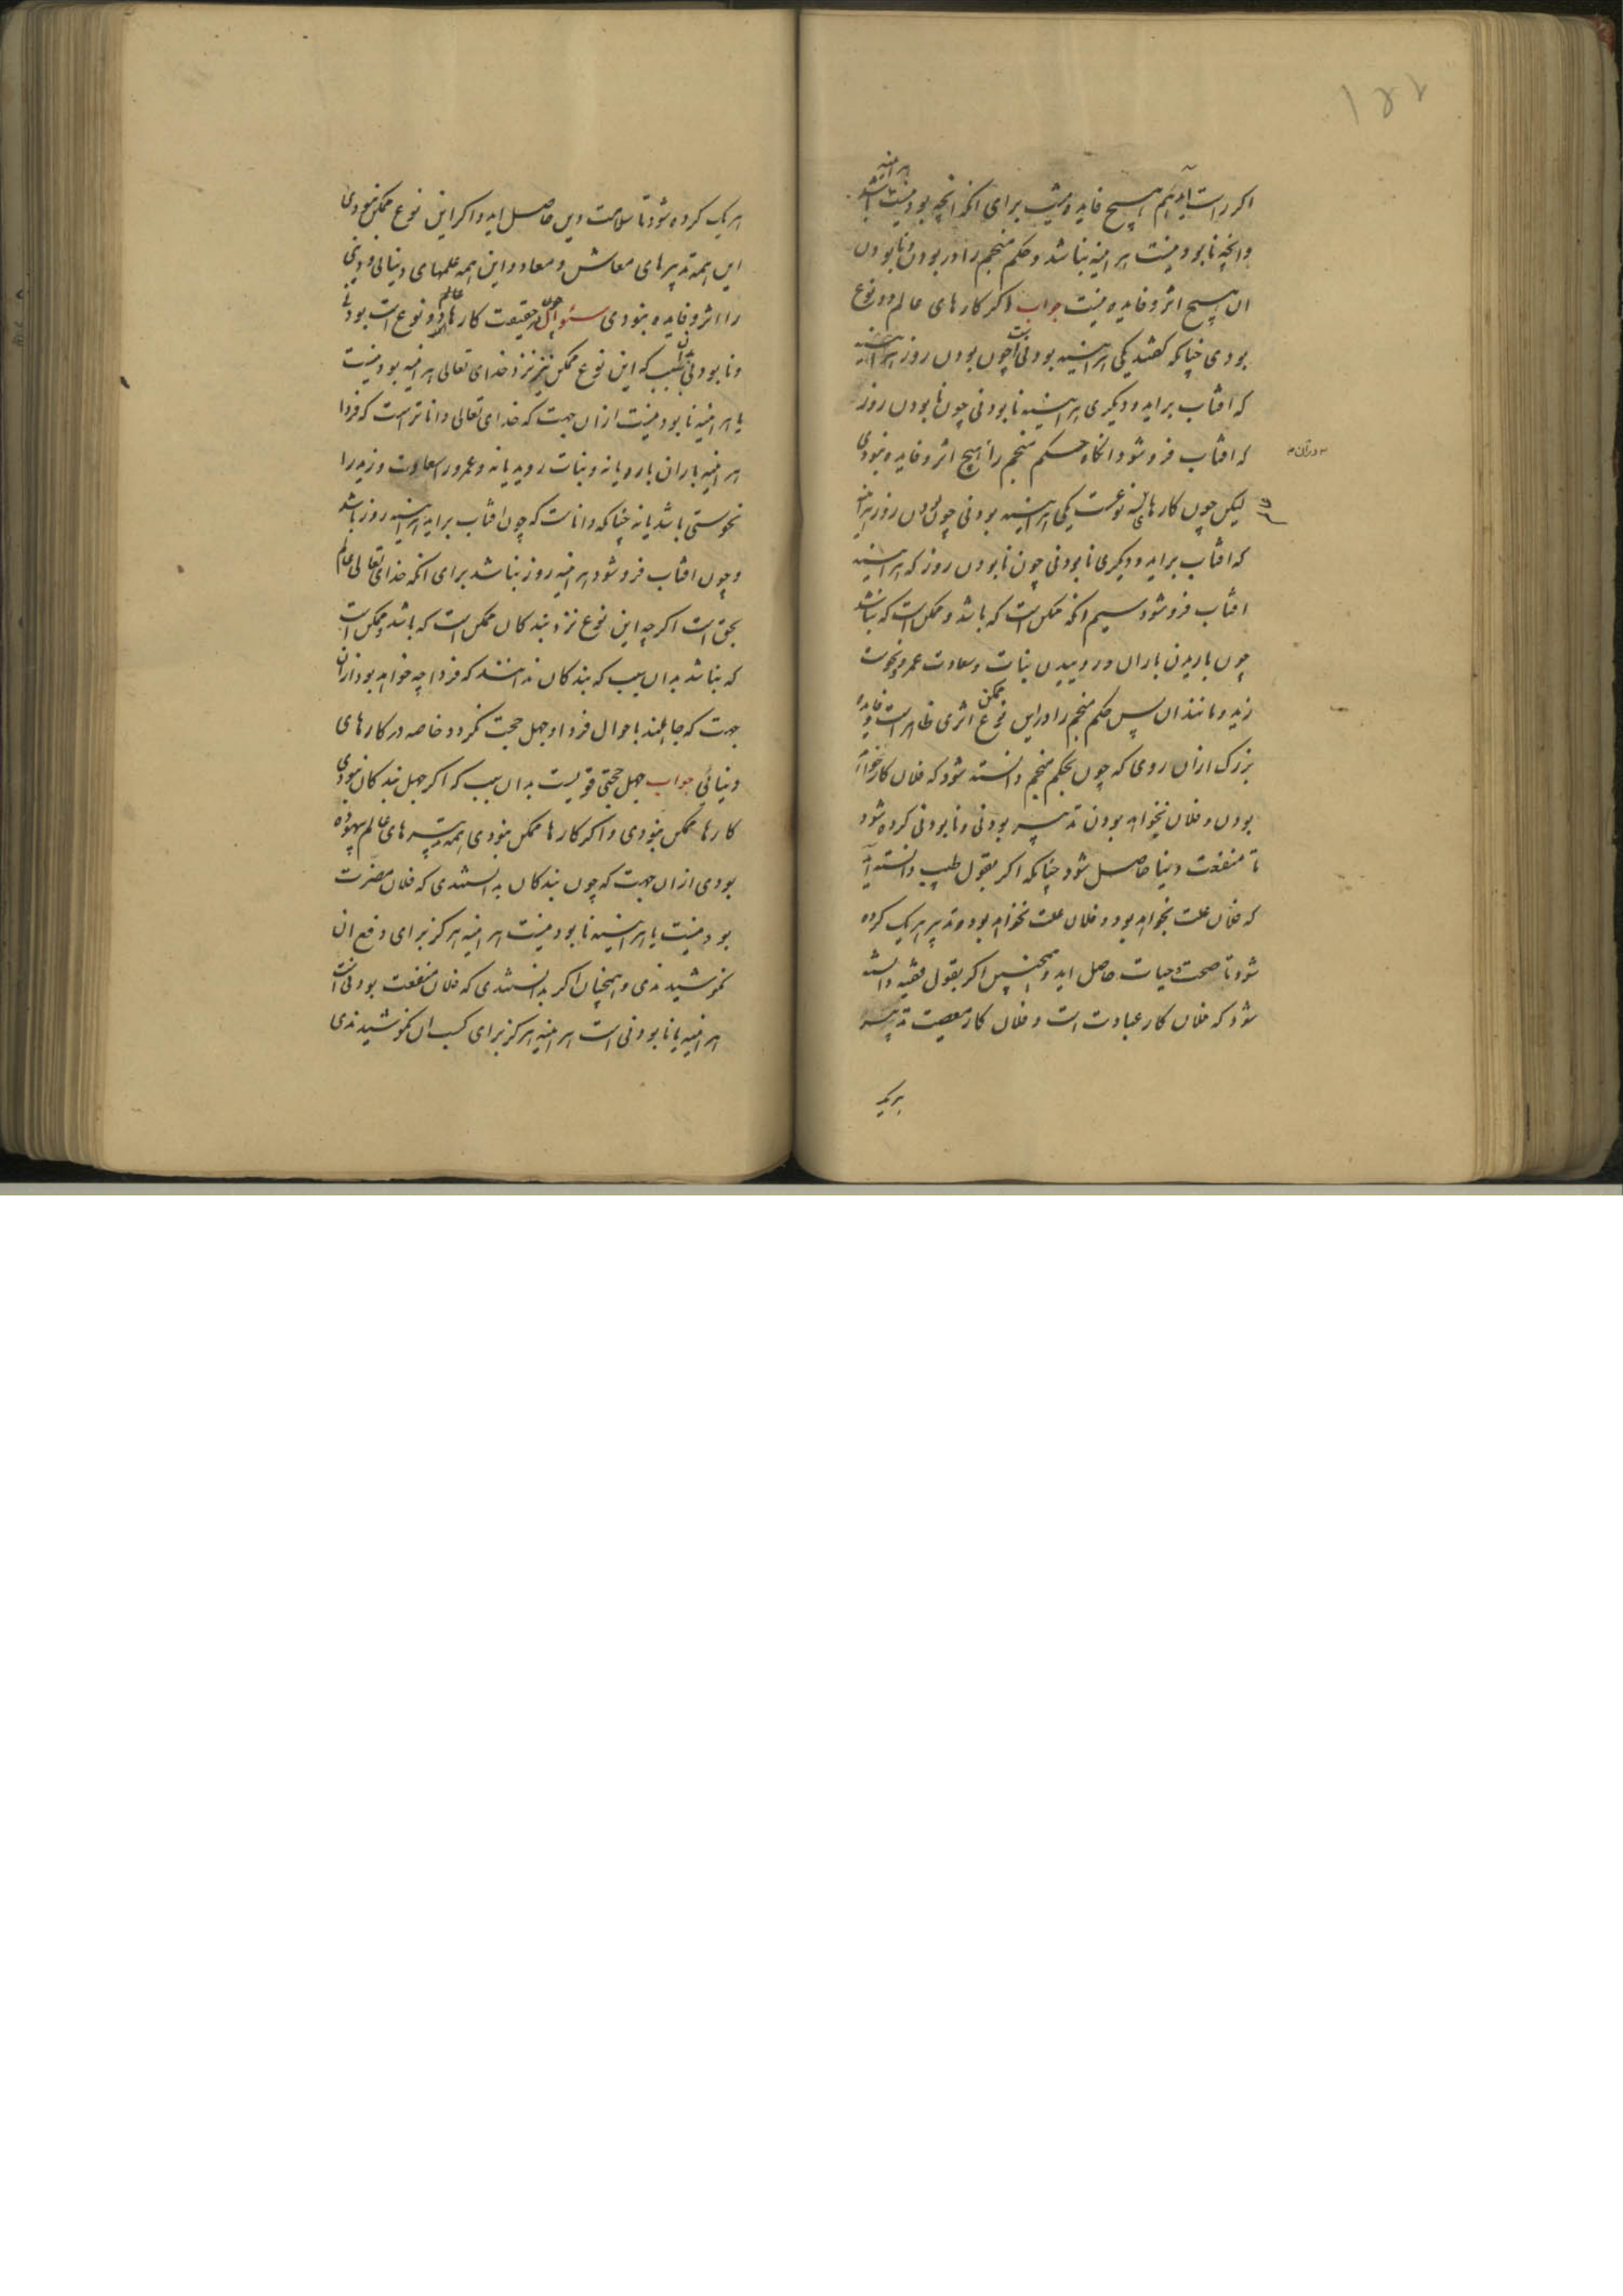 ۱۵۲
اکر راست آید هم هیچ فایده نیست برای انکه انچه بودنیست هراینه باشد
وانچه نابودنیست هراینه نباشد و حکم منجم را در بودن و نابودن
ان هیچ اثر و فایده نیست جواب اکر کارهای عالم دو نوع
بودی چنانکه کفتند یکی هراینه بودنی است چون بودن روز هراینه
که افتاب براید و دیکری هراینه نابودنی چون نابودن روز
که افتاب فرو شود انکاه حکم منجم را هیچ اثر و فایده نبودی
لیکن چون کارهای سه نوعست یکی هراینه بودنی چون بودن روز هراینه
که افتاب براید و دیکری نابودنی چون نابودن روز که هراینه
افتاب فرو شود سیم انکه ممکن است که باشد و ممکن است که نباشد
چون باریدن باران و روییدن نبات و سعادت عمرو و نحوست
زید و مانند ان پس حکم منجم را در این نوع ممکن اثری ظاهر است و فایده
بزرک ازان روی که چون بحکم منجم دانسته شود که فلان کار خواهد
بودن و فلان نخواهد بودن تدبیر بودنی و نابودنی کرده شود
تا منفعت دنیا حاصل شود چنانکه اکر بقول طبیب دانسته آید
که فلان علت بخواهد بود و فلان علت نخواهد بود و تدبیر هر یک کرده
شود تا صحت و حیات حاصل اید و همچنین اکر بقول فقیه دانسته
شود که فلان کار عبادت است و فلان کار معصیت تدبیر
هریک
هر یک کرده شود تا سلامت دین حاصل اید و اکر این نوع ممکن نبودی
این همه تدبیرهای معاش و معاد و این همه علمهای دنیائی و دینی
را اثر و فایده نبودی سئوال چون در حقیقت کارهای عالم دو نوع است بودنی
و نابودنی که این نوع ممکن نیز نزد خدای تعالی هراینه بودنیست
یا هراینه نابودنیست ازان جهت که خدای تعالی داناتر است که فردا
هراینه باران بارد یا نه و نبات روید یا نه و عمرو را سعادت و زید را
نحوستی باشد یا نه چنانکه داناست که چون افتاب براید هراینه روز باشد
و چون افتاب فرو شود هراینه روز نباشد برای انکه خدای تعالی عالم
بحق است اکرچه این نوع نزد بندکان ممکن است که باشد و ممکن است
که نباشد بدان سبب که بندکان ندانند که فردا چه خواهد بود ازان
جهت که جاهلند باحوال فردا و جهل حجت نکردد خاصه در کارهای
دنیائی جواب جهل حجتی قویست بدان سبب که اکر جهل بندکان نبودی
کارها ممکن نبودی و اکر کارها ممکن نبودی همه تدبیرهای عالم بیهوده
بودی ازان جهت که چون بندکان بدانستندی که فلان مضرت
بودنیست یا هراینه نابودنیست هراینه هرکز برای دفع ان
نکوشیدندی و همچنان اکر بدانستندی که فلان منفعت بودنی است
هراینه یا نابودنی است هراینه هرکز برای کسب ان نکوشیدندی